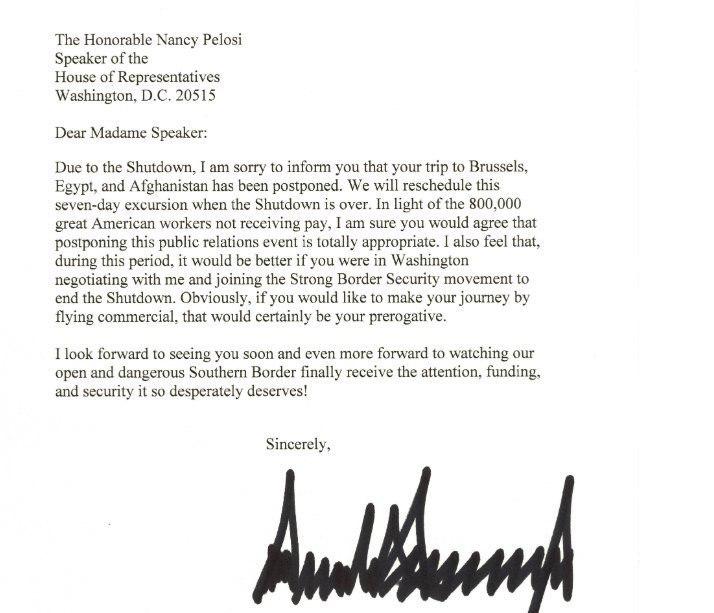 The Honorable Nancy Pelosi
Speaker of the
House of Representatives
Washington, D.C. 20515
Dear Madame Speaker:
Due to the Shutdown, I am sorry to inform you that your trip to Brussels,
Egypt, and Afghanistan has been postponed. We will reschedule this
seven-day excursion when the Shutdown is over. In light of the 800,000
great American workers not receiving pay, I am sure you would agree that
postponing this public relations event is totally appropriate. I also feel that,
during this period, it would be better if you were in Washington
negotiating with me and joining the Strong Border Security movement to
end the Shutdown. Obviously, if you would like to make your journey by
flying commercial, that would certainly be your prerogative.
I look forward to seeing you soon and even more forward to watching our
open and dangerous Southern Border finally receive the attention, funding,
and security it so desperately deserves!
Sincerely,